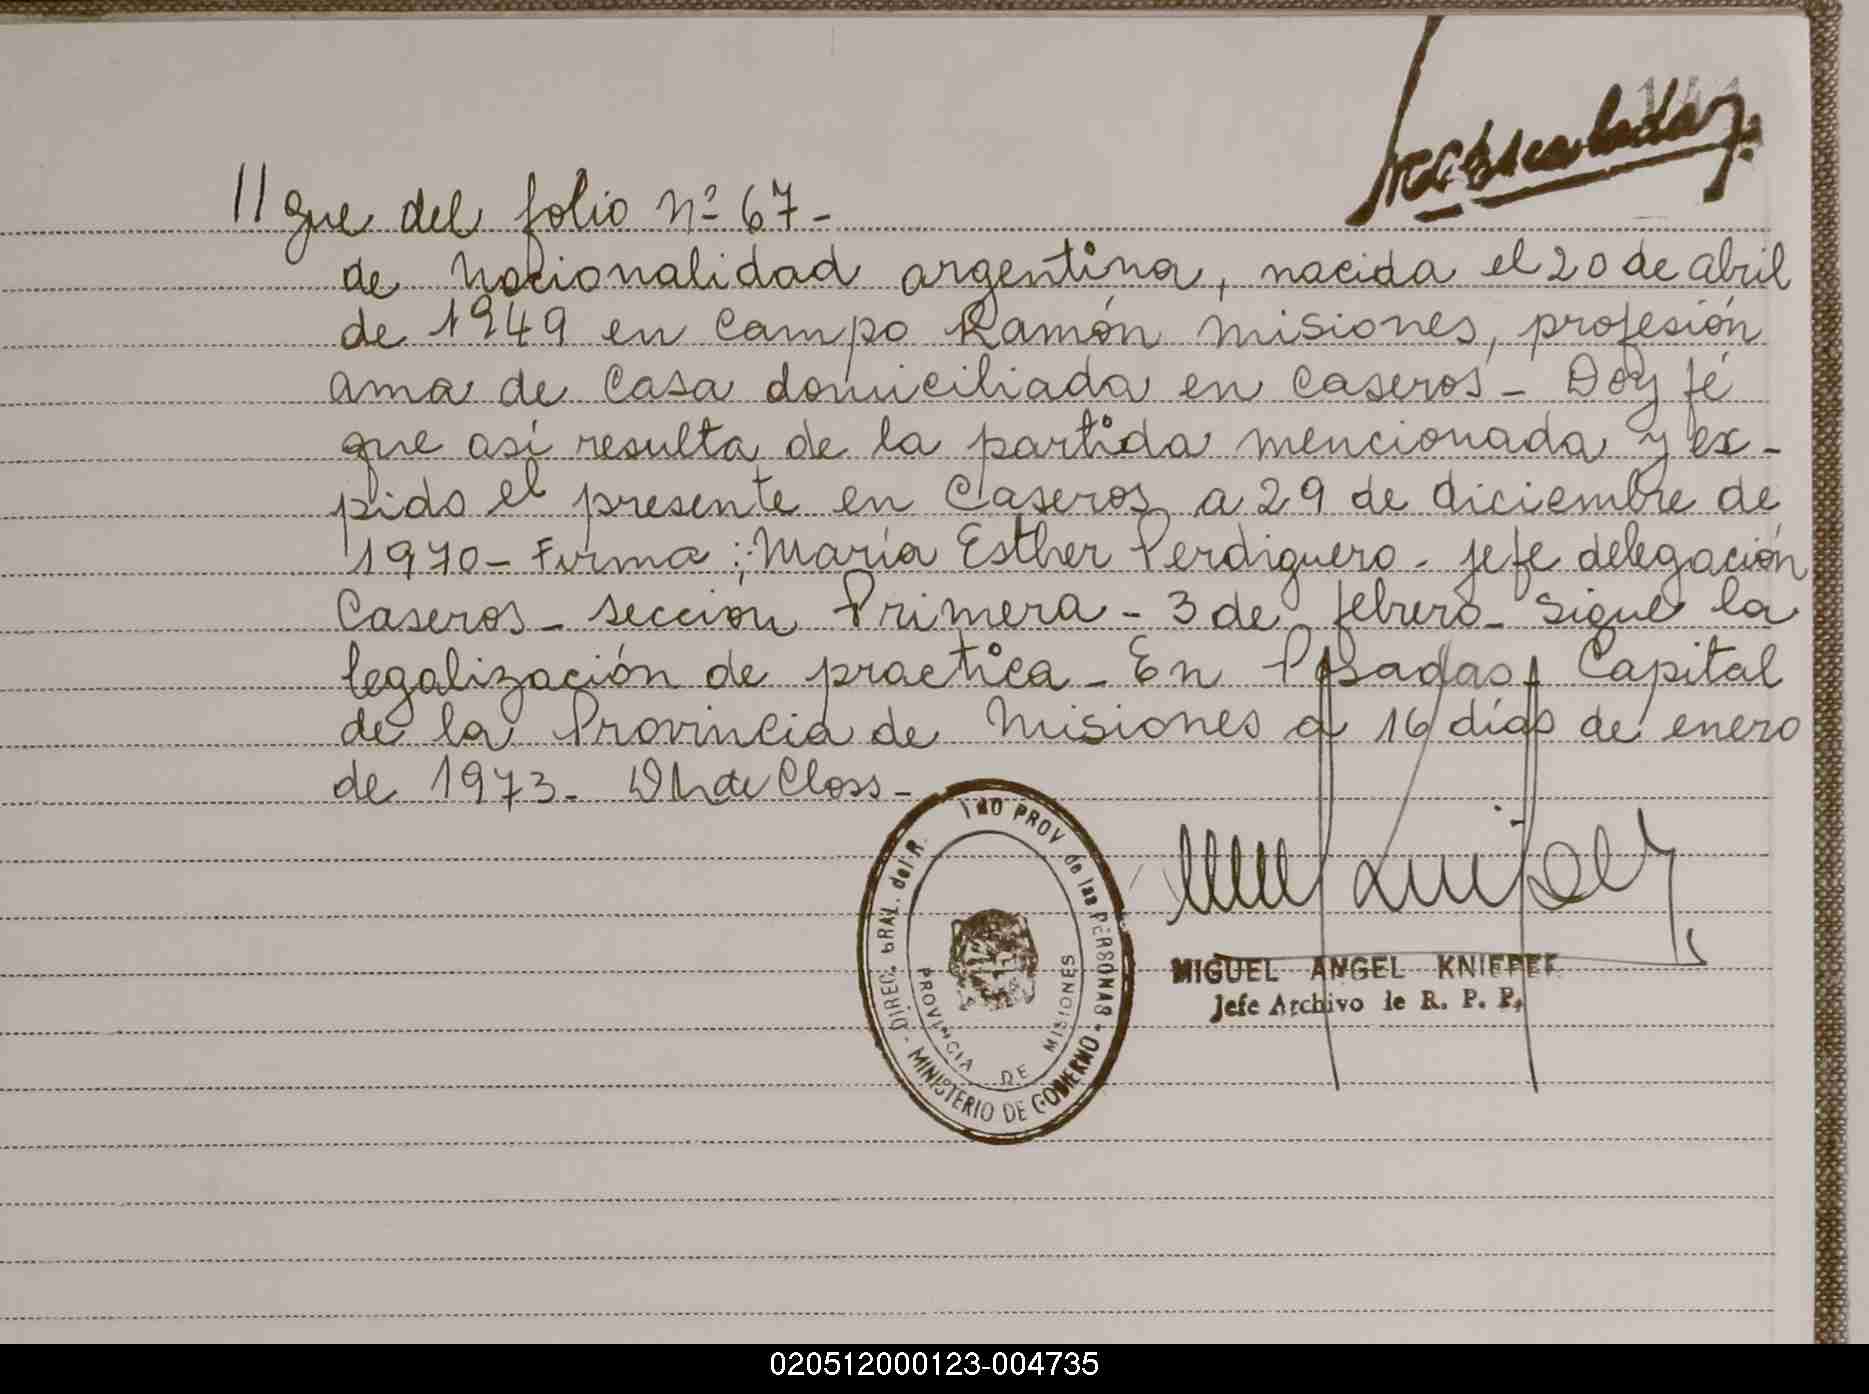 141
//gue del folio nº 67-
de nacionalidad argentina, nacida el 20 de abril
de 1949 en Campo Ramón Misiones, profesión
ama de casa domiciliada en Caseros - Doy fé
que así resulta de la partida mencionada y ex-
pido el presente en Caseros a 29 de diciembre de
1970 - Firma: María Esther Perdiguero - jefe delegación
Caseros - sección Primera - 3 de febrero - sigue la
legalización de practica - En Posadas, Capital
de la Provincia de Misiones a 16 días de enero
de 1973 - de Closs -
DIREC. GRAL. del R. PROV de las PERSONAS - MINISTERIO DE GOBIERNO -
PROVINCIA DE MISIONES
MIGUEL ANGEL
Jefe Archivo de R. P. P.
020512000123-004735